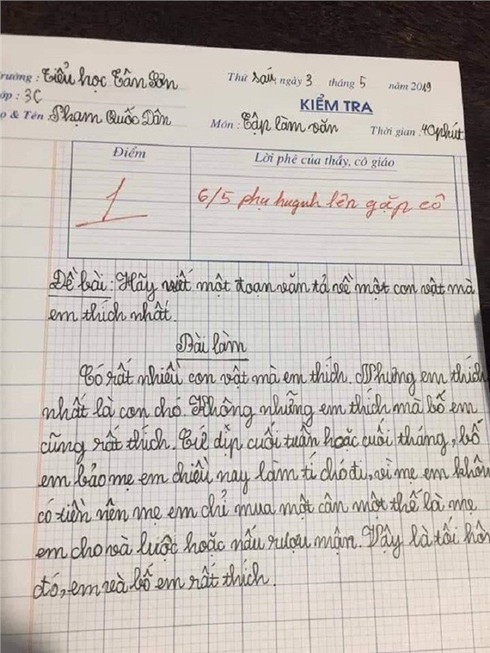 Trường : Tiểu học Tân Sơn Thứ sáu, ngày 3 tháng 5 năm 2019
Lớp : 3C KIỂM TRA
Họ & Tên : Phạm Quốc Dân Môn : Tập làm văn Thời gian : 40 phút
Điểm Lời phê của thầy, cô giáo
1 6/5 phụ huynh lên gặp cô
Đề bài : Hãy viết một đoạn văn tả về một con vật mà
em thích nhất.
Bài làm
Có rất nhiều con vật mà em thích. Nhưng em thích
nhất là con chó. Không những em thích mà bố em
cũng rất thích. Cứ dịp cuối tuần hoặc cuối tháng, bố
em bảo mẹ em chiều nay làm tí chó đi, vì mẹ em khôn
có tiền nên mẹ em chỉ mua một cân một thế là mẹ
em cho và luộc hoặc nấu rượu mận. Vậy là tối hôm
đó, em và bố em rất thích.